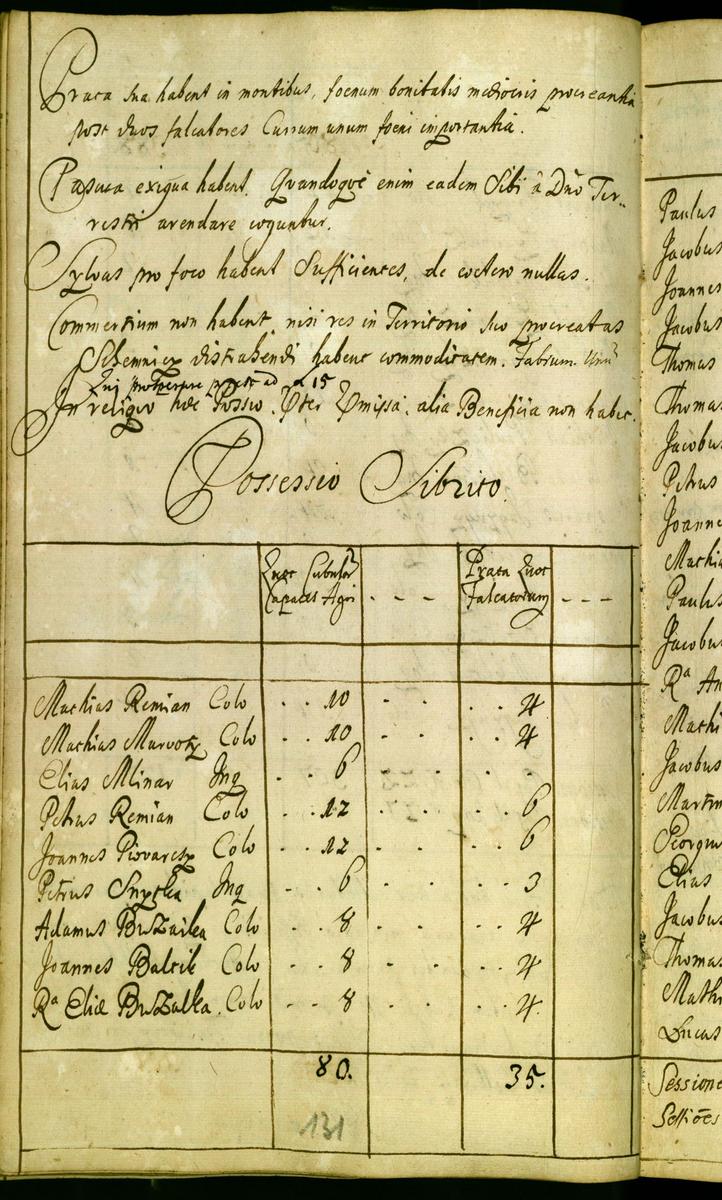 Prata sua habent in montibus, foenum bonitatis mediocris procreantia
post duos falcatores Currum unum foeni importantia.
Pascua exigua habent. Quandoque enim eadem Sibi à Dno Ter-
restri arendare coguntur.
Sylvas pro foco habent Sufficientes, de coetero nullas.
Commertium non habent, nisi res in Territorio suo procreatas
Schemnicz distrahendi habent commoditatem. Fabrum. Unu
ad 15
In reliquo haec Possio. Pter Praemissa. alia Beneficia non habet.
Possessio Sibrito.
Quot Cubulor Capaces Agri - - - Prata Quot Falcatorum - - -
Mathias Remian Colo . . 10 . . . . 4
Mathias Murvocz Colo . . 10 . . . . 4
Elias Mlinar Inq . . 6 . . . .
Petrus Remian Colo . . 12 . . . . 6
Joannes Pivvarcz Colo . . 12 . . . . 6
Petrus Inq . . 6 . . . . 3
Adamus BuZalka Colo . . 8 . . . . 4
Joannes Balcik Colo . . 8 . . . . 4
Ra Eliæ BuZalka. Colo . . 8 . . . . 4.
80. 35.
131
Paulus
Jacobus
Joannes
Jacobus
Thomas
Thomas
Jacobus
Petrus
Joanne
Mathi
Paulus
Jacobu
Ra An
Mathi
Jacobus
Martin
Georgiu
Elias
Jacobu
Thomas
Math
Lucas
Sessione
Sessiões